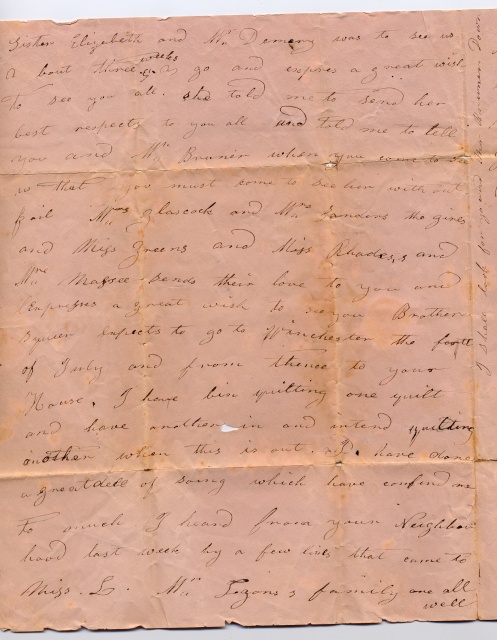 Sister Elizabeth and Mr. Demery was to see us
a bout three weeks ago and expres a great wish
to see you all. she told me to send her
best respects to you all and told me to tell
you and Mrs Bruner when you come to
that you must come to see her with out
fail Mrs Glascock and Mrs the girls
and Miss Greens and Miss Rhodes,s and
Mrs Massee sends their love to you and
Expresses a great wish to see you Brother
expects to go to Winchester the forth
of July and from thence to your
House. I have bin quilting one quilt
and have another in and intend quilting
another when this is out. I have done
a great dele of soing which have confind me
to much I heard from your Neighbour
hood last week by a few lines that came to
Miss. L. Mrs family are all
well
I shall look for you and down